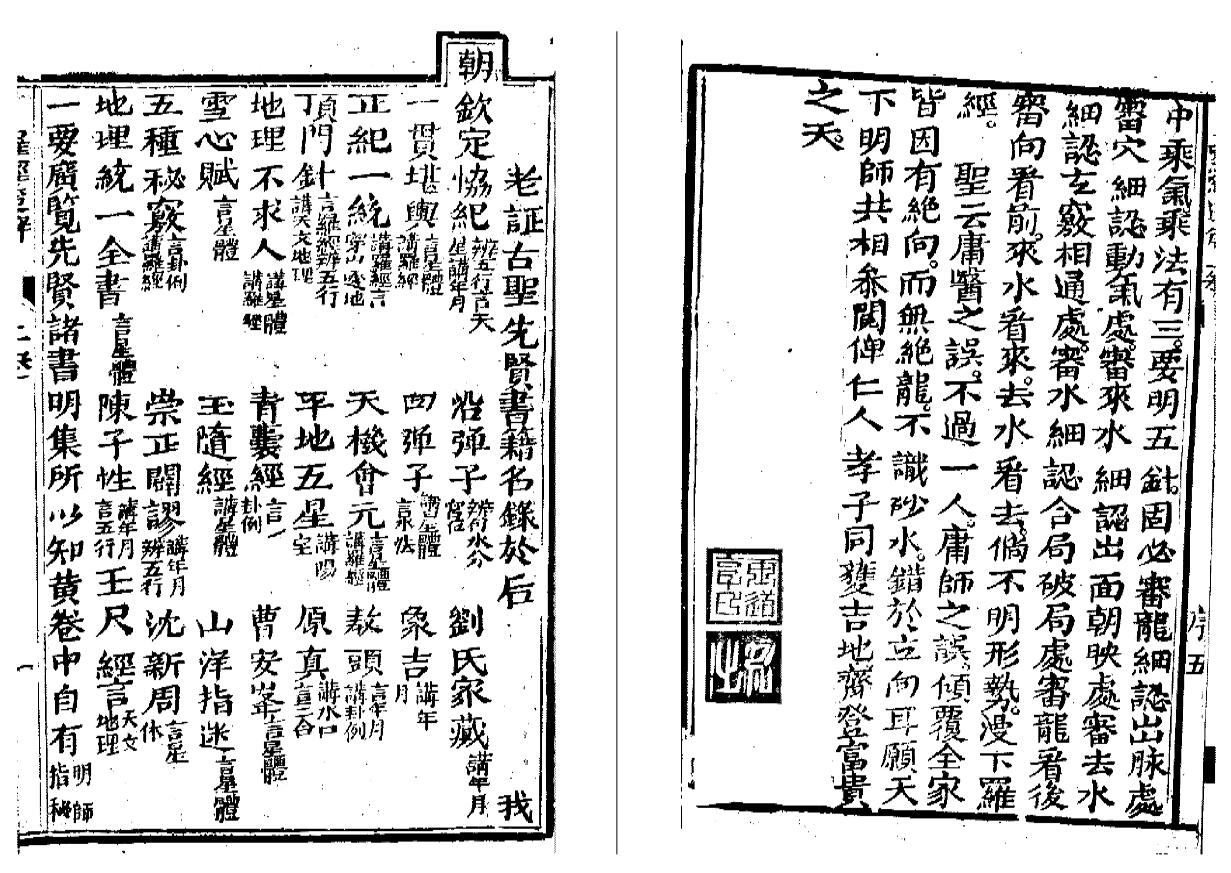 中乘氣乘法有三。要明五針。固必審龍細認出脉處
審穴細認動氣處。審來水細認出面朝映處審去水
細認玄竅相通處。審水細認合局破局處審龍看後
審向看前。來水看來。去水看去。倘不明形勢。漫下羅
經。　聖云庸醫之誤。不過一人。庸師之誤。傾覆全家
皆因有絕向。而無絕龍。不識砂水。錯於立向耳願天
下明師共相參閱俾仁人孝子同獲吉地齊登富貴
之天。
序五
老証古聖先賢書籍名錄於后　我
朝欽定協紀辨五行言天星講年月　沿弾子　劉氏家藏講年月
一貫堪輿言星體講羅經　四弾子講星體言水法　象吉講年月
正紀一統講羅經言穿山透地　天機會元言星體講羅經　敖頭言年月講卦例
頂門針言羅經辨五行講天文地理　平地五星講陽宅　原真講水口言三百
地理不求人講星體講羅經　青囊經言卦例　曹安峯言星體
雪心賦言星體　玉隨經講星體　山洋指迷言星體
五種秘竅言卦例講羅經　崇正闢謬講年月辨五行　沈新周言星体
地理統一全書言星體　陳子性講年月言五行　玉尺經言天文地理
一要廣覧先賢諸書明集所以知黄卷中自有明師指秘